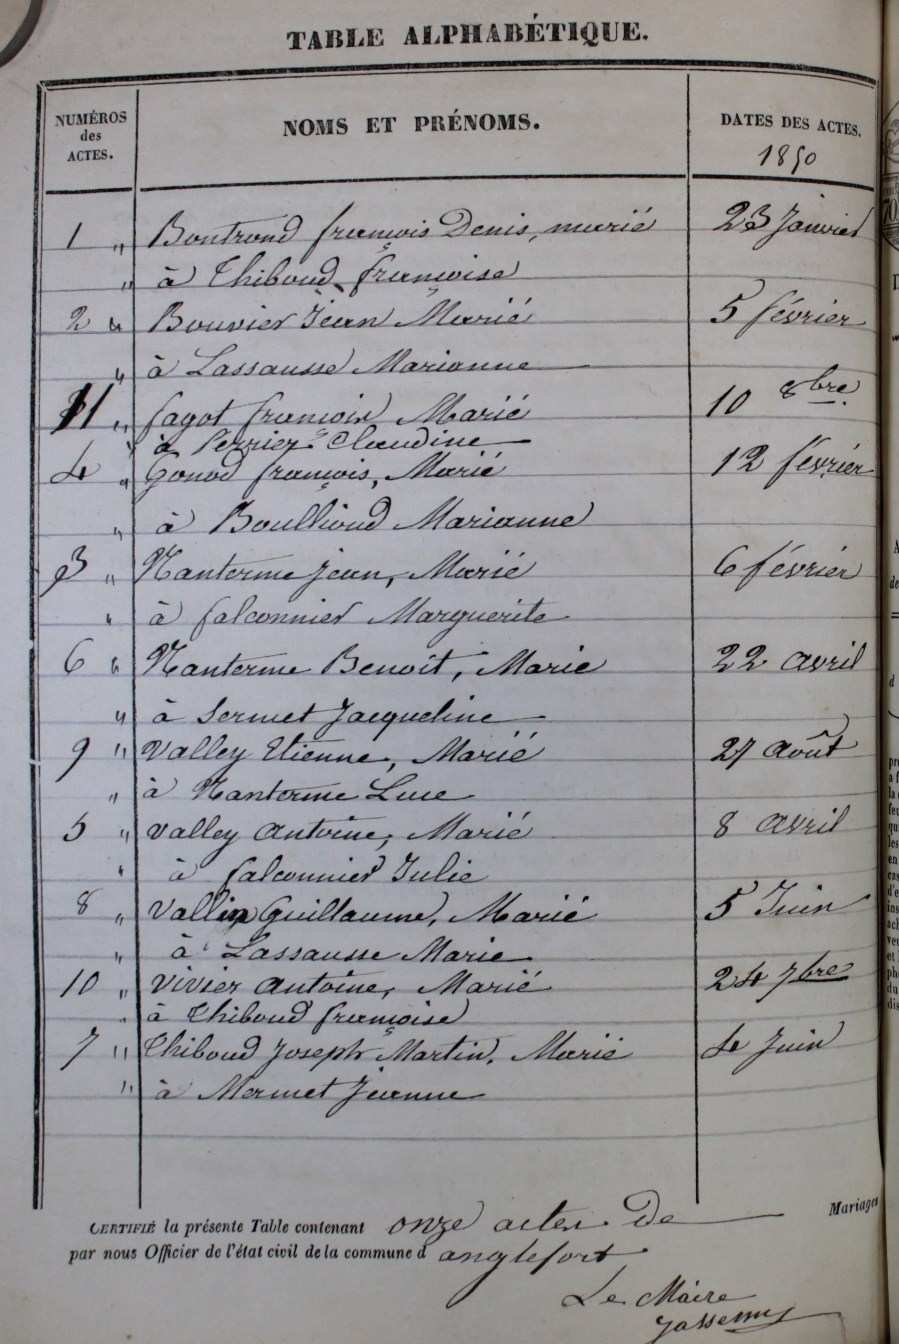 TABLE ALPHABÉTIQUE.
NUMÉROS des ACTES. NOMS ET PRÉNOMS. DATES DES ACTES.
1850
1 " Bontrond françois Denis, marié 23 Janvier
" à Thiboud françoise
2 " Bouvier Jean Marié 5 février
" à Lassausse Marianne
11 " fagot françois Marié 10 8bre
" à Perrier Claudine
4 " Gonod françois, Marié 12 février
" à Boullioud Marianne
3 " Nanterme Jean, Marié 6 février
" à falconnier Marguerite
6 " Nanterme Benoît, Marie 22 avril
" à Sermet Jacqueline
9 " Valley Etienne, Marié 27 août
" à Nanterme Luce
5 " Valley Antoine, Marié 8 avril
" à falconnier Julie
8 " Vallin Guillaume, Marié 5 Juin
" à Lassausse Marie
10 " Vivier Antoine, Marié 24 7bre
" à Thiboud françoise
7 " Thiboud Joseph Martin, Marié 4 Juin
" à Mermet Jeanne
Mariages
CERTIFIÉ la présente Table contenant onze actes de
par nous Officier de l'état civil de la commune d anglefort
Le Maire